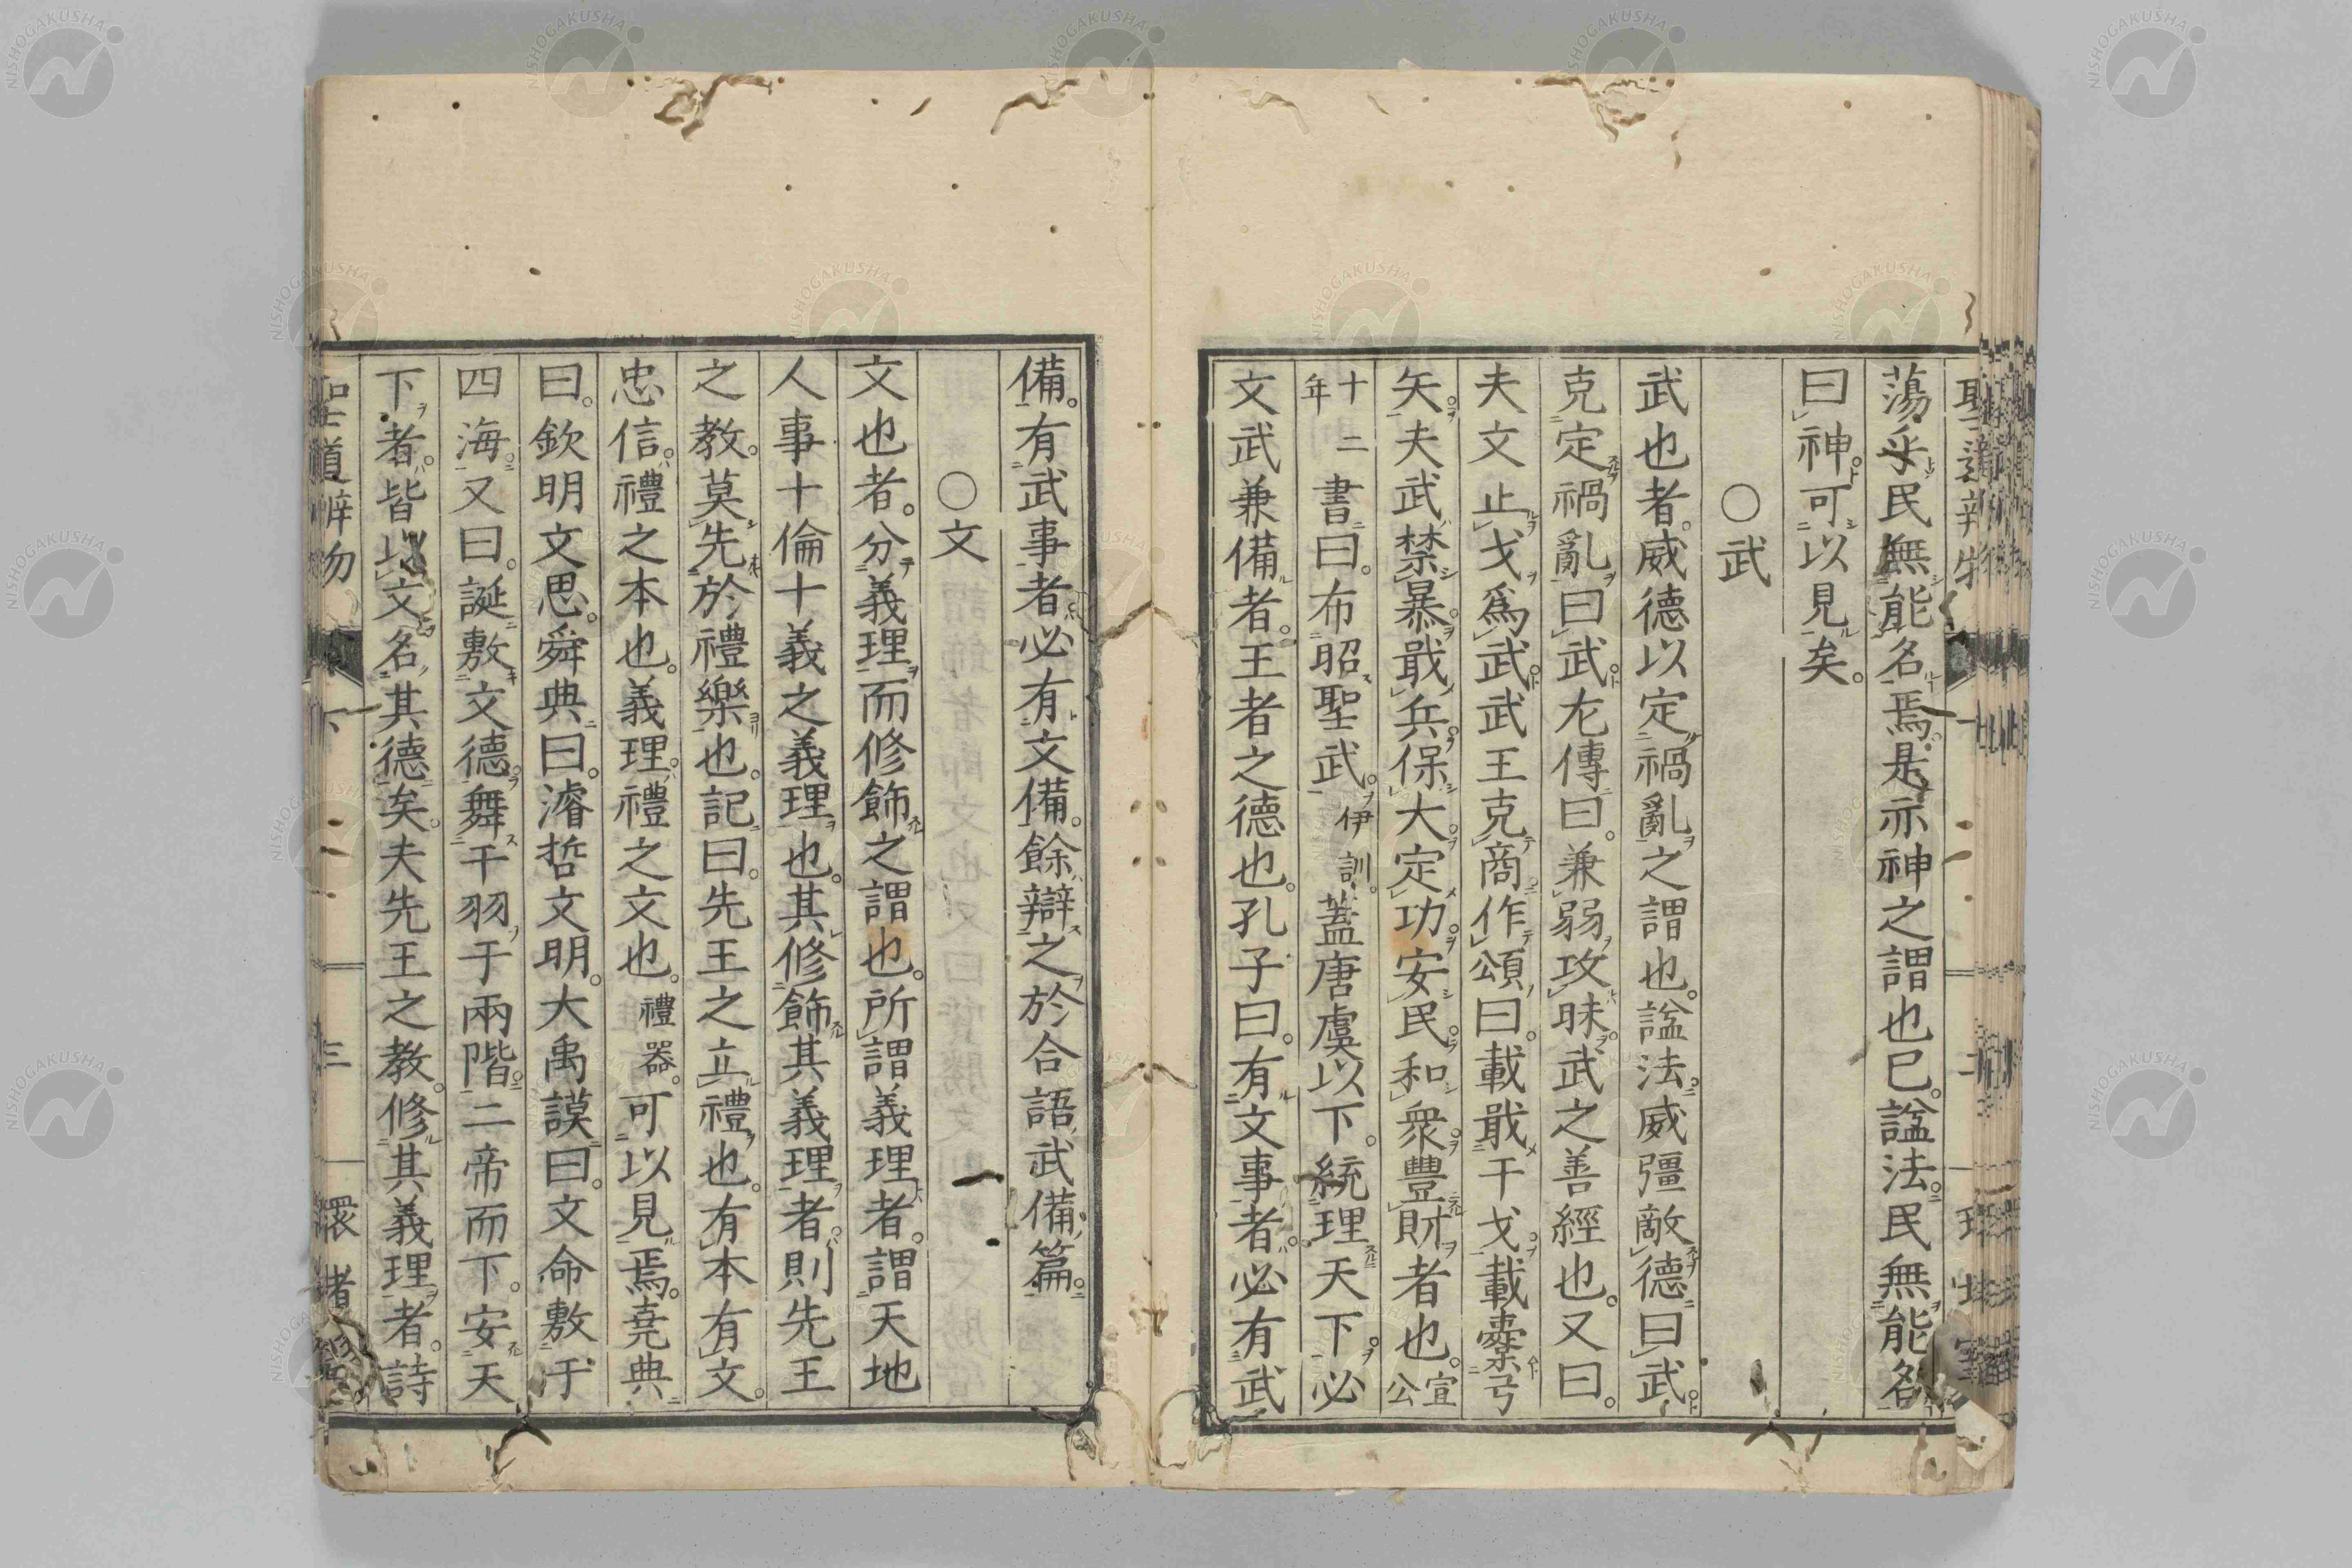 蕩乎民無能名焉。是示神之謂也已。諡法民無能名
曰神。可以見矣。
〇武
武也者。威德以定禍亂之謂也。諡法威彊敵德曰武。
克定禍亂曰武。左傳曰。兼弱攻昧。武之善經也。又曰。
夫文止戈爲武。武王克商。作頌曰。載戢干戈。載櫜弓
矢。夫武禁暴。戢兵。保大。定功。安民。和衆。豐財者也。宣公
十二年書曰。布昭聖武。伊訓。蓋唐虞以下。統理天下。必
文武兼備者。王者之德也。孔子曰。有文事者。必有武
備。有武事者必有文備。餘辯之於合語武備篇。
〇文
文也者。分義理而修飾之謂也。所謂義理者。謂天地
人事十倫十義之義理也。其修飾其義理者。則先王
之教。莫先於禮樂也。記曰。先王之立禮也。有本有文。
忠信。禮之本也。義理。禮之文也。禮器。可以見焉。堯典
曰。欽明文思。舜典曰。濬哲文明。大禹謨曰。文命敷于
四海。又曰。誕敷文德。舞干羽于兩階。二帝而下。安天
下者。皆以文名其德矣。夫先王之教。修其義理者。詩
聖道辨物 下 三 環堵
NISHOGAKUSHA